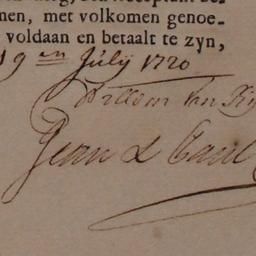 men, met volkomen genoe-
voldaan en betaalt te zyn,
19 en July 1720
Willem van
Jean L